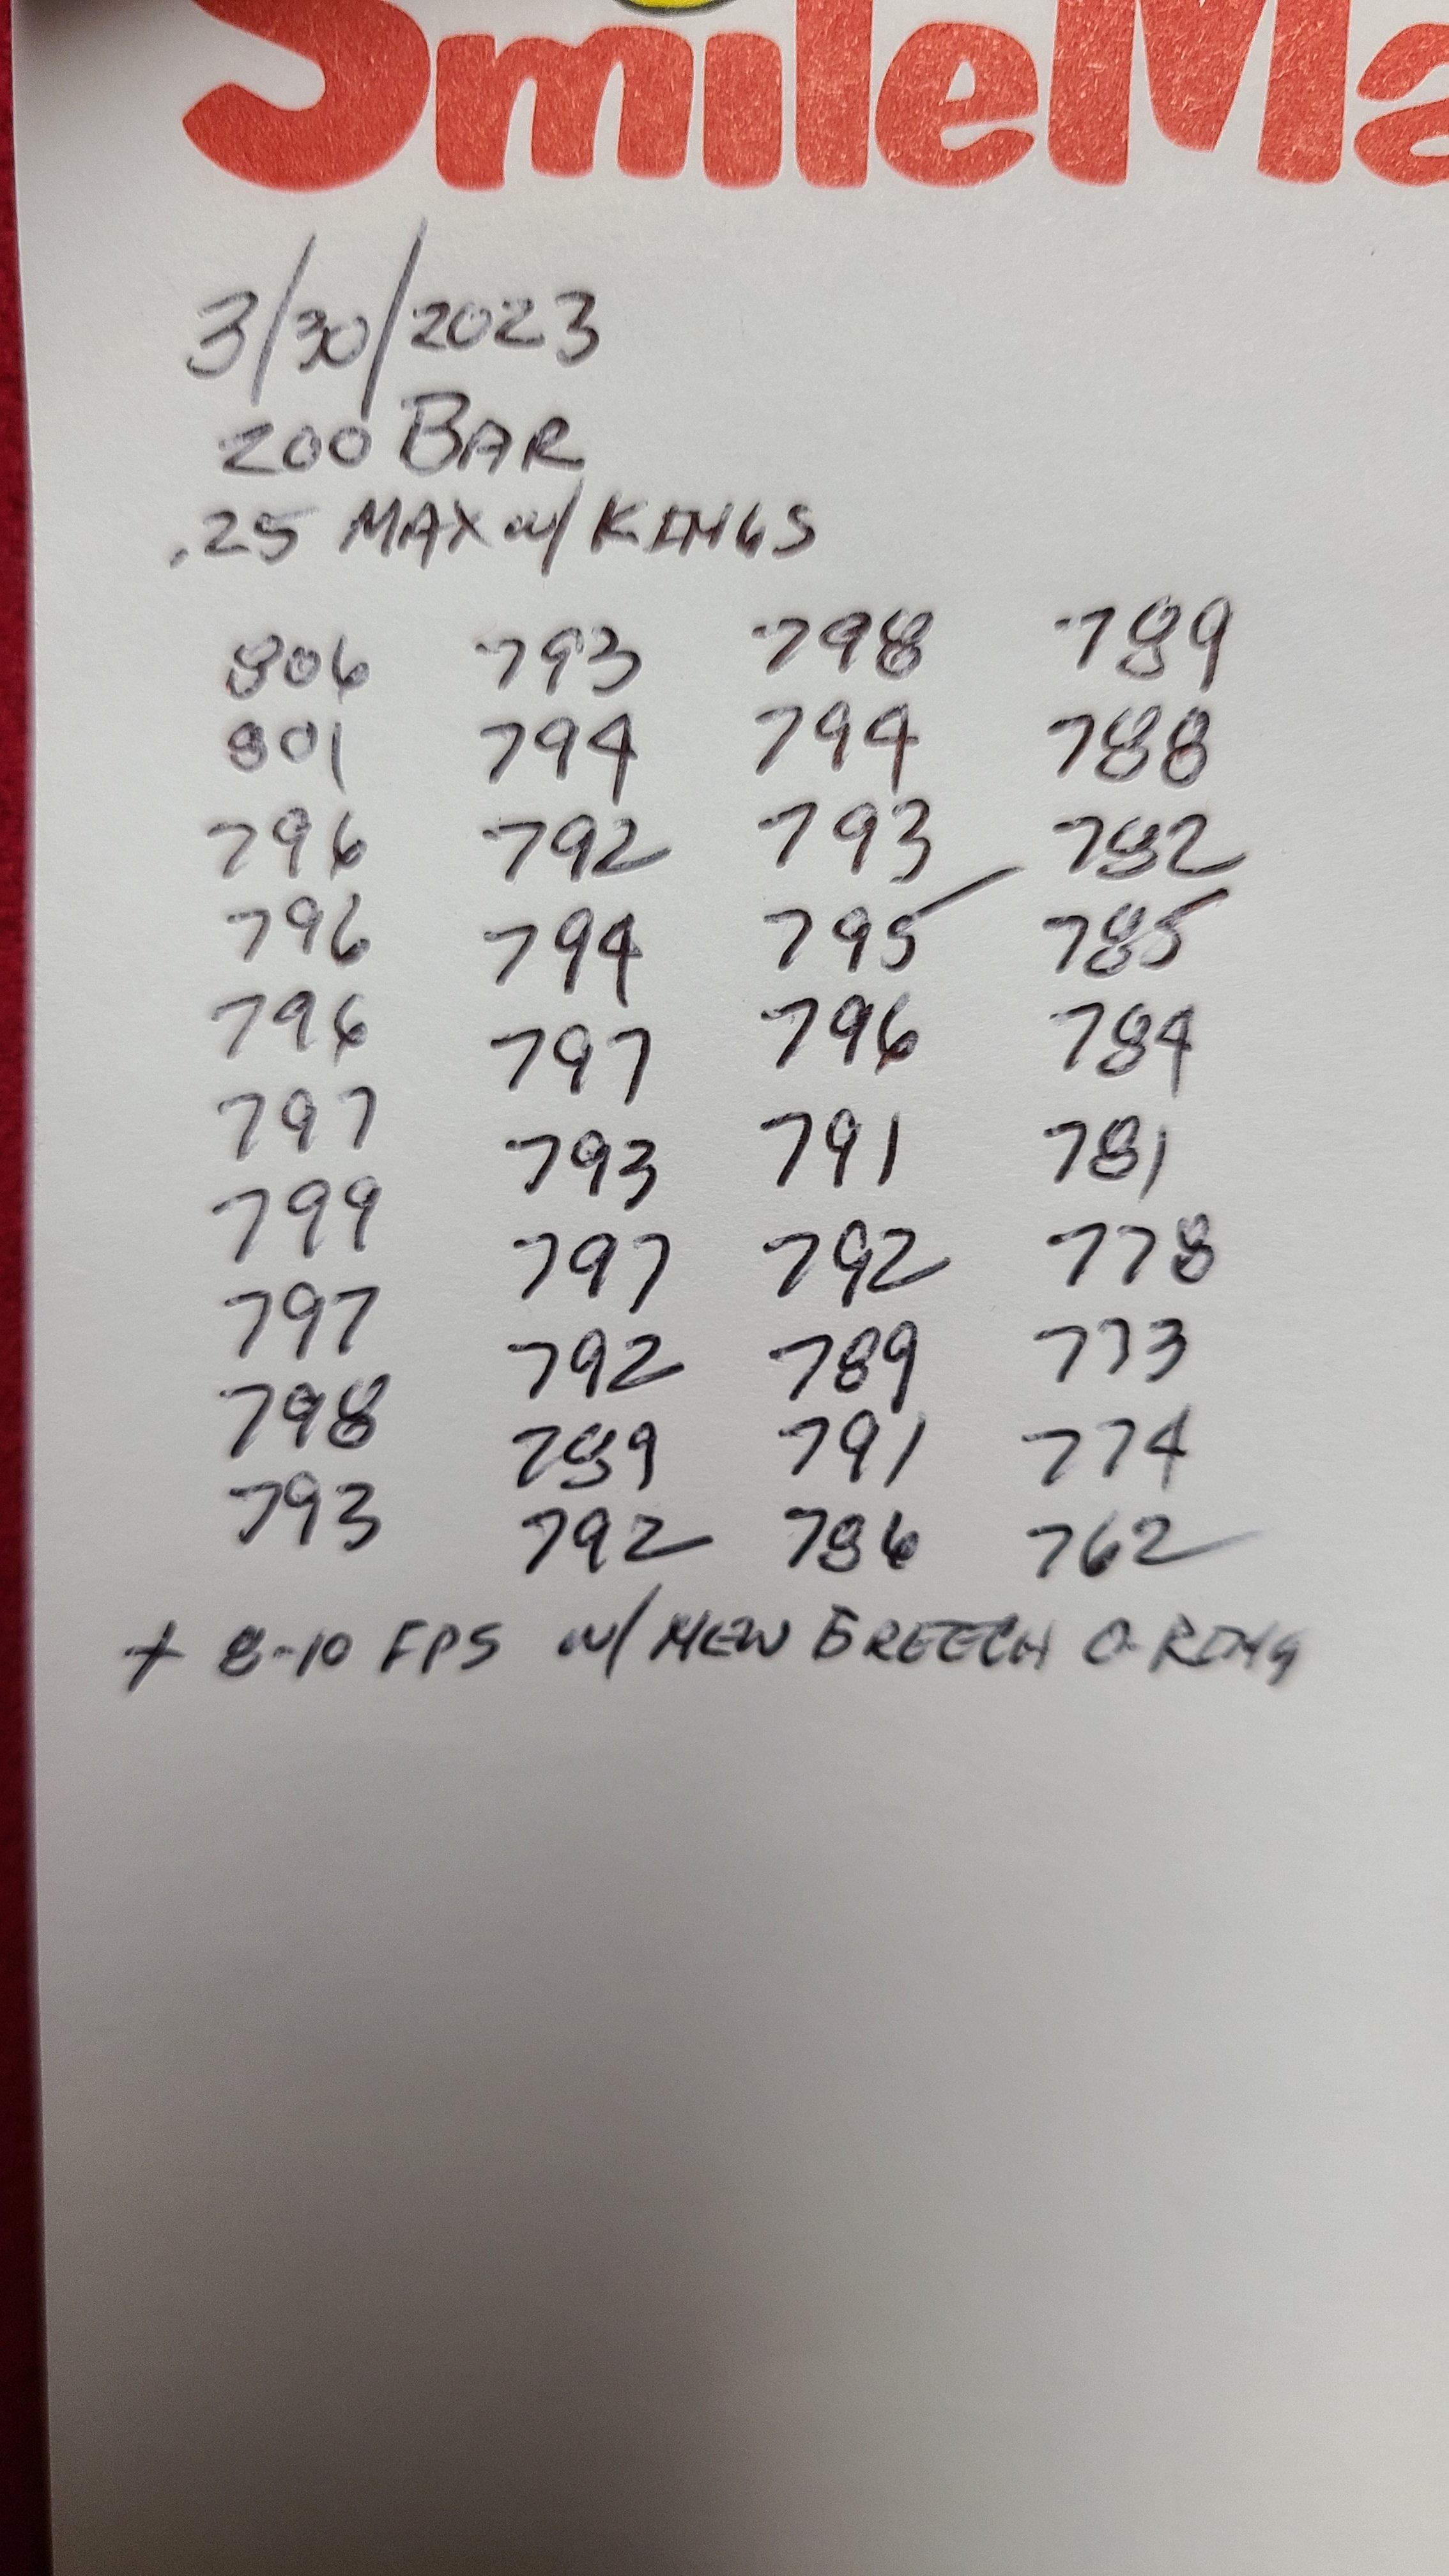 SmileMa
3/30/2023
200 BAR
.25 MAX w/ KINGS
806 793 798 789
801 794 794 788
796 792 793 782
796 794 795 785
796 797 796 784
797 793 791 781
799 797 792 778
797 792 789 773
798 789 791 774
793 792 786 762
+ 8-10 FPS w/ NEW BREECH O-RING